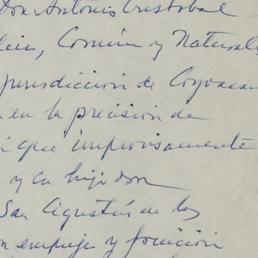 Don Antonio Cristobal
Común y Natural
Jurisdicción de Coyoacan
en la precisión de
que improvisamente
y su hijo don
San Agustin de las
empuje y